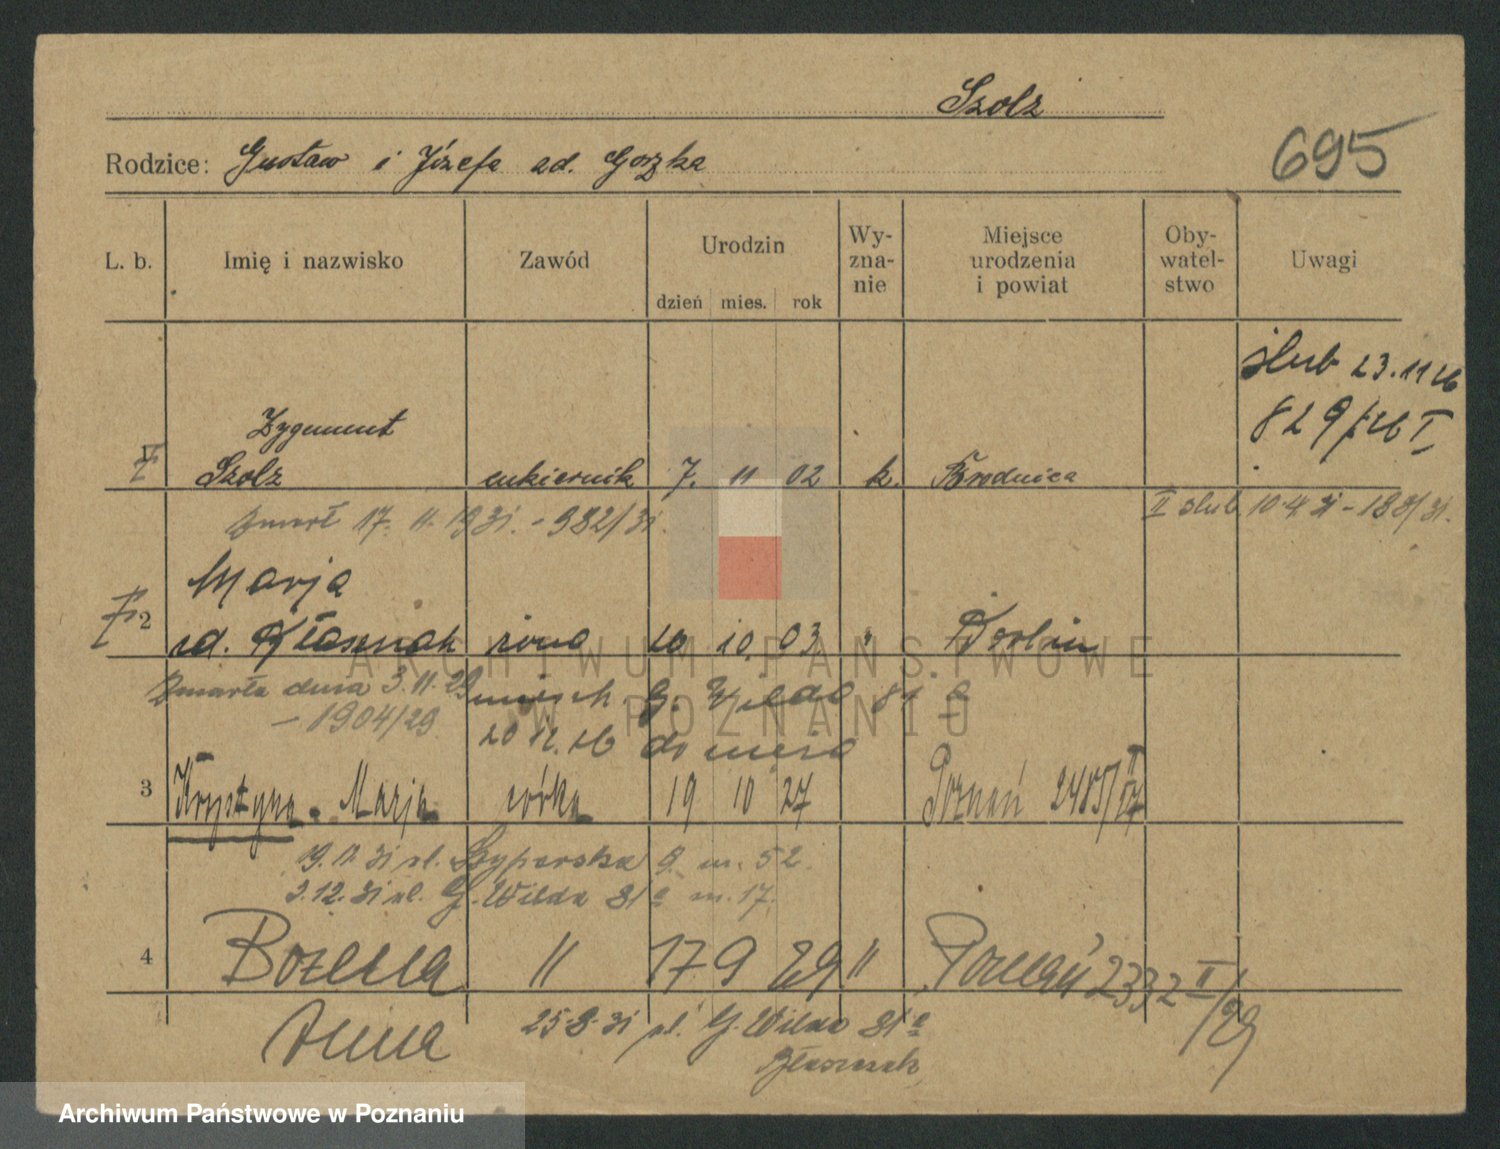 Szolz
Rodzice: Gustaw i Józefa zd. Gorzka
695
L. b.
Imię i nazwisko
Zawód
Urodzin
dzień mies. rok
Wy-
zna-
nie
Miejsce
urodzenia
i powiat
Oby-
watel-
stwo
Uwagi
ślub 23.11 26
829/26 I
Zygmunt
Szolz cukiernik 7. 11 02 k. Brodnica
zmarł 17. 11. 1931. - 982/31.
II ślub 10.4 31 - 188/31.
Marja
2 zd. żona 10 10. 03 " Berlin
zmarła dnia 3.11.29
- 1904/29
G. Wilda 81 a
20 12. 26 do męża
3 Krystyna Marja córka 19 10 27 Poznań 2485/27 II
19.11 31 ul. 9 m. 52.
2.12.31 ul. G. Wilda 81a m. 17.
4 Bożena " 17 9 29 " Poznań 2332 II/29
Anna
25.8.31 ul. G. Wilda 81a
ARCHIWUM PAŃSTWOWE
W POZNANIU
Archiwum Państwowe w Poznaniu